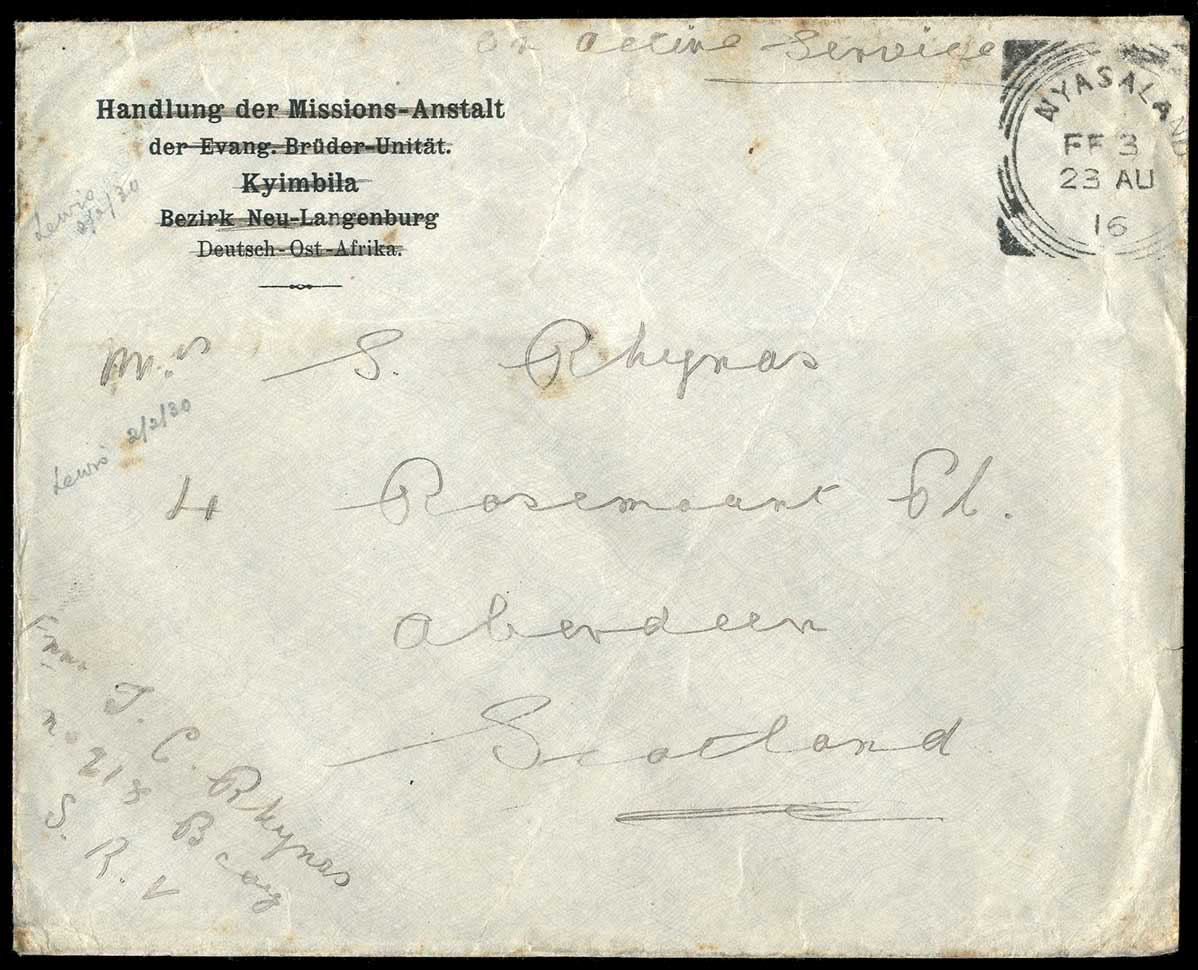 On Active Service
Handlung der Missions-Anstalt
der Evang. Brüder-Unität.
Kyimbila
Bezirk Neu-Langenburg
Deutsch-Ost-Afrika.
NYASALAND
FF 3
23 AU
16
Lewis
2/2/30
S. Rhynas
Lewis 2/2/30
4 Rosemount Pl.
Aberdeen
Scotland
From
J. C. Rhynas
B Coy
S. R. V